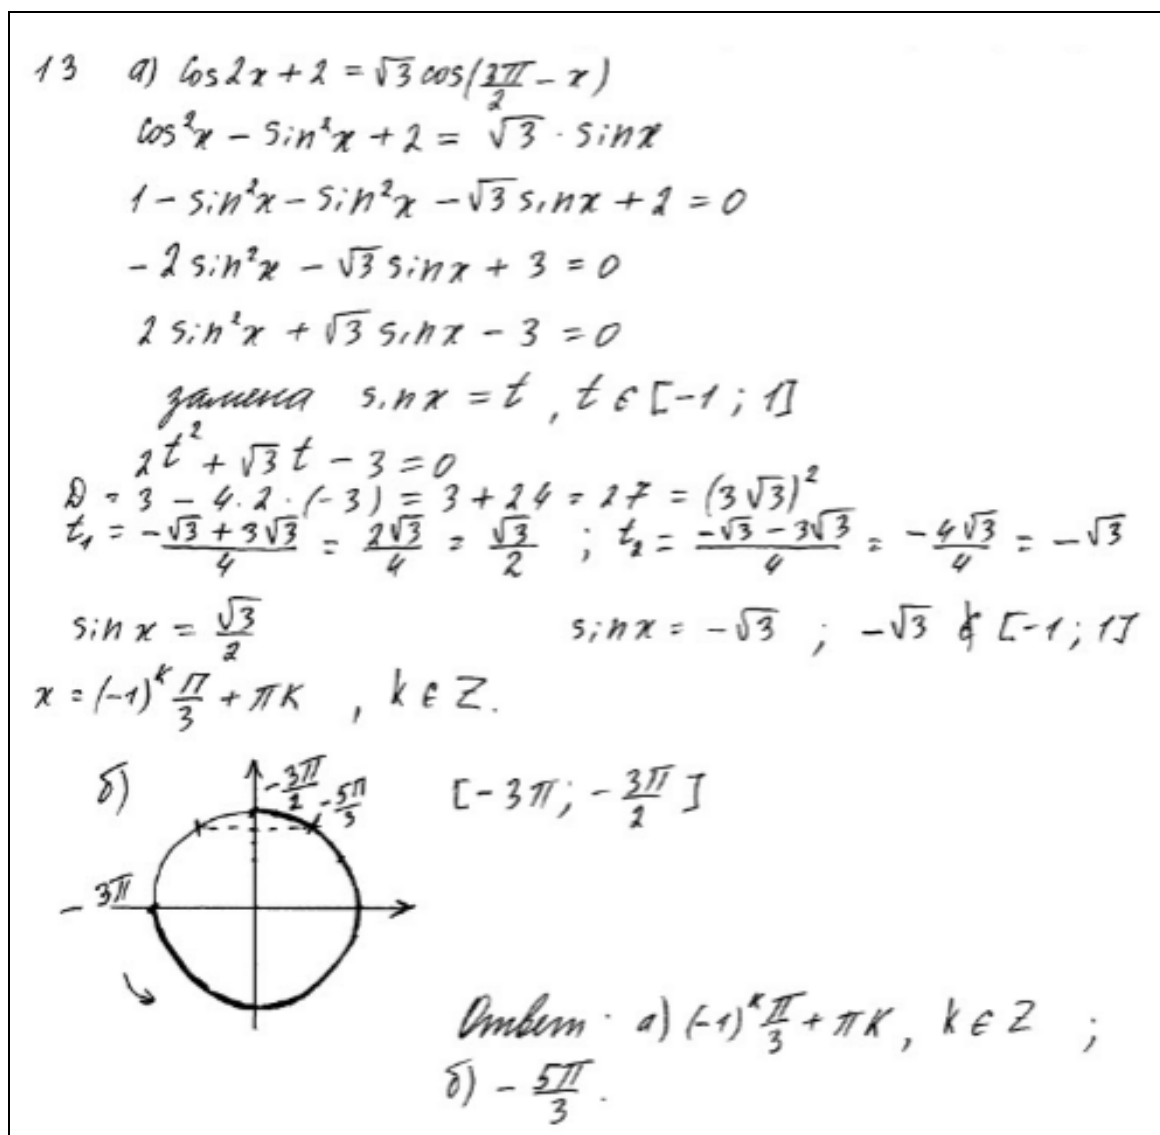 13 а) cos2x + 2 = √3 cos(3π/2 − x)
cos²x − sin²x + 2 = √3 · sinx
1 − sin²x − sin²x − √3 sinx + 2 = 0
− 2 sin²x − √3 sinx + 3 = 0
2 sin²x + √3 sinx − 3 = 0
замена sinx = t , t ∈ [−1 ; 1]
2t² + √3 t − 3 = 0
D = 3 − 4 · 2 · (−3) = 3 + 24 = 27 = (3√3)²
t₁ = (−√3 + 3√3)/4 = 2√3/4 = √3/2 ; t₂ = (−√3 − 3√3)/4 = −4√3/4 = −√3
sinx = √3/2 sinx = −√3 ; −√3 ∉ [−1 ; 1]
x = (−1)^k π/3 + πk , k ∈ Z.
б) −3π/2 −5π/3 [−3π; −3π/2]
− 3π
Ответ · а) (−1)^k π/3 + πk, k ∈ Z ;
б) − 5π/3 .